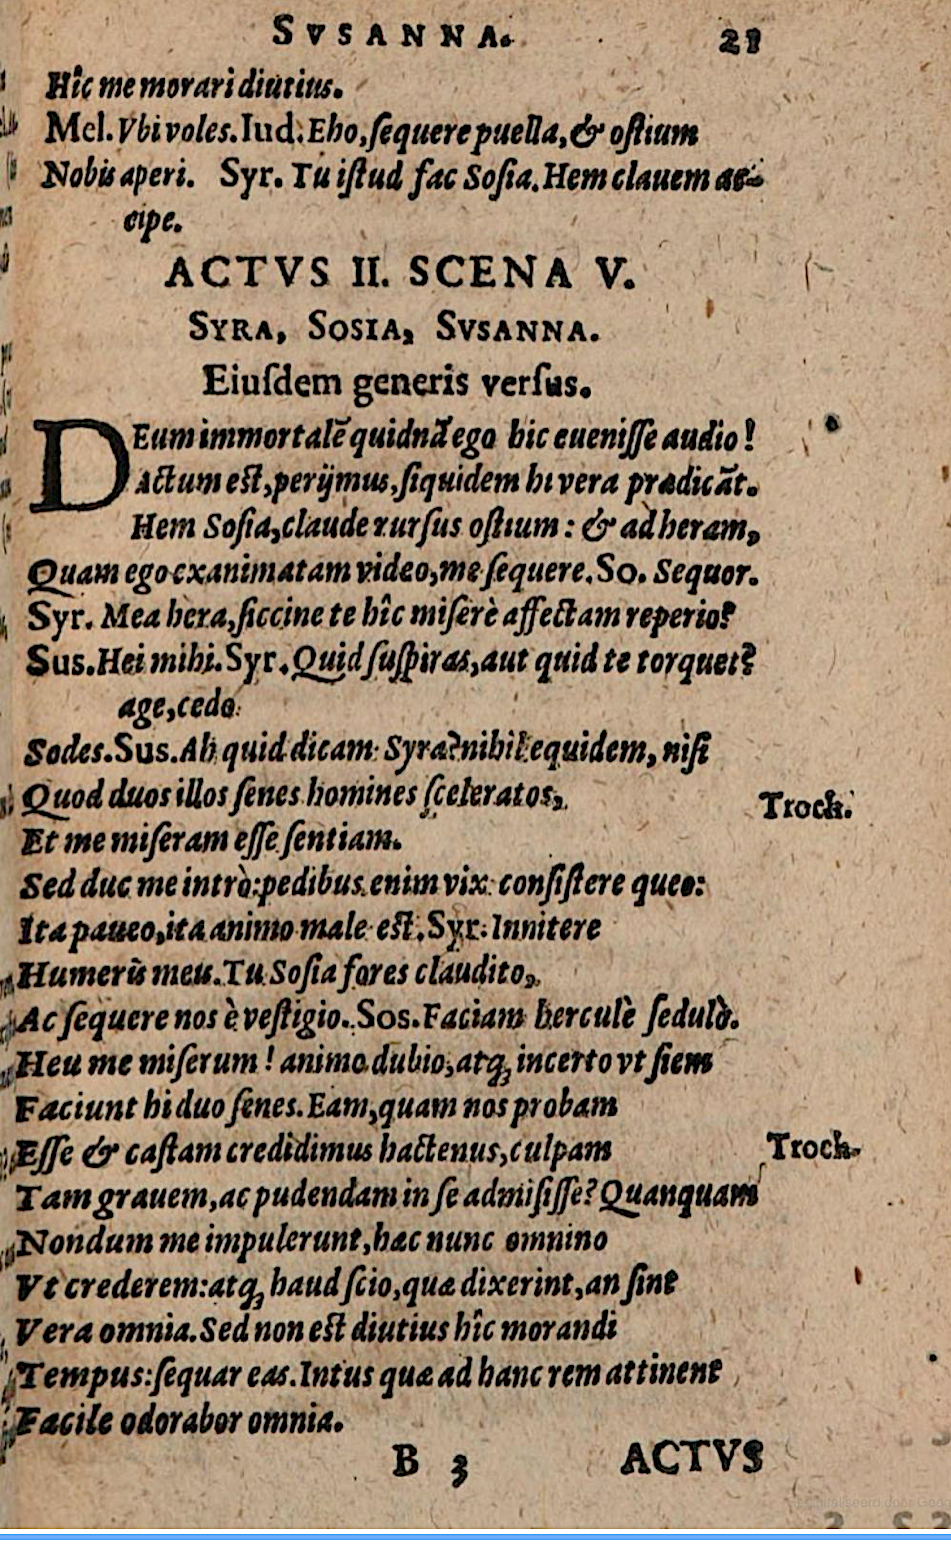 SVSANNA. 21
Hîc me morari diutius.
Mel. Vbi voles. Iud. Eho, ſequere puella, & oſtium
Nobis aperi. Syr. Tu iſtud fac Soſia. Hem clauem ac-
cipe.
ACTVS II. SCENA V.
SYRA, SOSIA, SVSANNA.
Eiuſdem generis verſus.
DEum immortalẽ quidnã ego hic eueniſſe audio!
Actum eſt, perijmus, ſiquidem hi vera prædicãt.
Hem Soſia, claude rurſus oſtium: & ad heram,
Quam ego exanimatam video, me ſequere. So. Sequor.
Syr. Mea hera, ſiccine te hîc miſerè affectam reperio?
Sus. Hei mihi. Syr. Quid ſuſpiras, aut quid te torquet?
age, cedo
Sodes. Sus. Ah quid dicam Syra? nihil equidem, niſi
Quod duos illos ſenes homines ſceleratos, Troch.
Et me miſeram eſſe ſentiam.
Sed duc me intrò: pedibus enim vix conſiſtere queo:
Ita paueo, ita animo male eſt. Syr. Innitere
Humeris meis. Tu Soſia fores claudito,
Ac ſequere nos è veſtigio. Sos. Faciam herculè ſedulò.
Heu me miſerum! animo dubio, atq; incerto vt ſiem
Faciunt hi duo ſenes. Eam, quam nos probam
Eſſe & caſtam credidimus hactenus, culpam Troch.
Tam grauem, ac pudendam in ſe admiſiſſe? Quanquam
Nondum me impulerunt, hac nunc omnino
Vt crederem: atq; haud ſcio, quæ dixerint, an ſint
Vera omnia. Sed non eſt diutius hîc morandi
Tempus: ſequar eas. Intus quæ ad hanc rem attinent
Facile odorabor omnia.
B 3 ACTVS